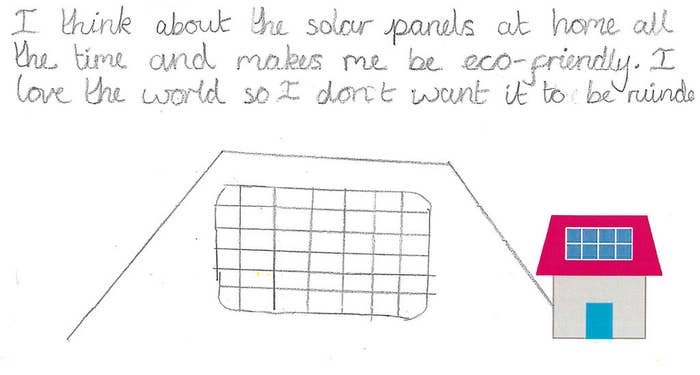 I think about the solar panels at home all
the time and makes me be eco-friendly. I
love the world so I don't want it to be ruinde